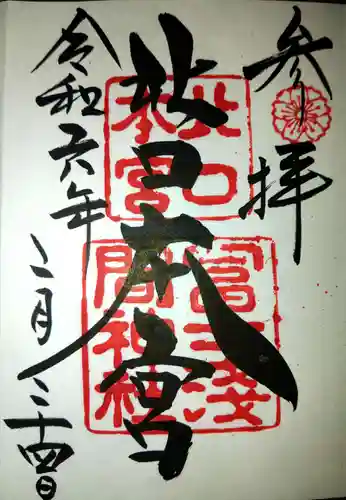 参拝
北口本宮
令和六年
二月二十四日
北口
本宮
冨士浅
間神社